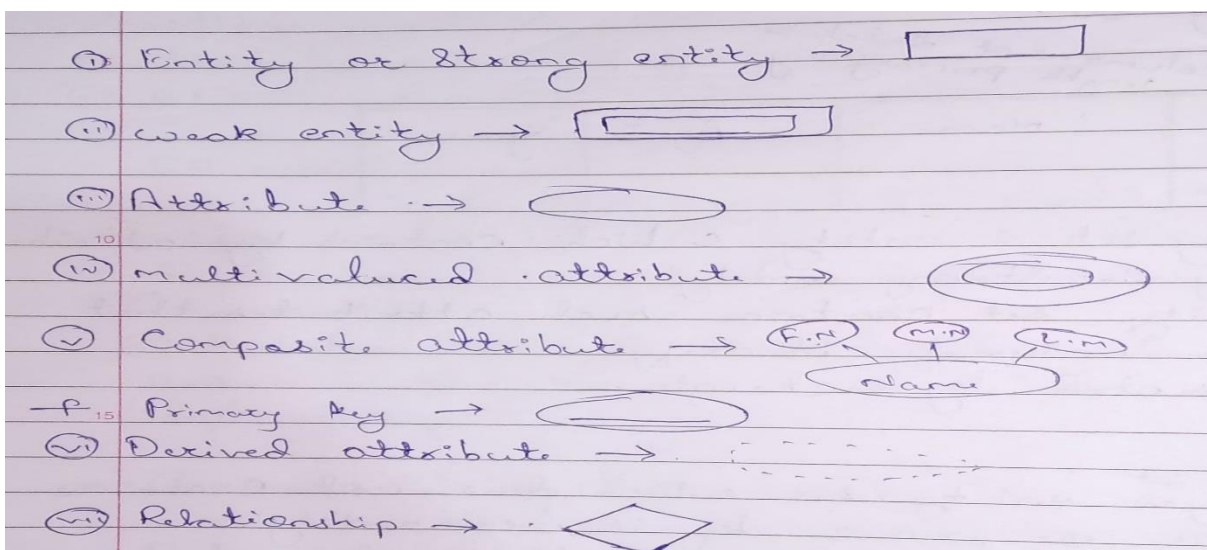 (i) Entity or Strong entity →
(ii) weak entity →
(iii) Attribute →
10
(iv) multivalued attribute →
(v) Composite attribute → F.N M.N L.M
Name
15 Primary key →
(vi) Derived attribute →
(vii) Relationship →